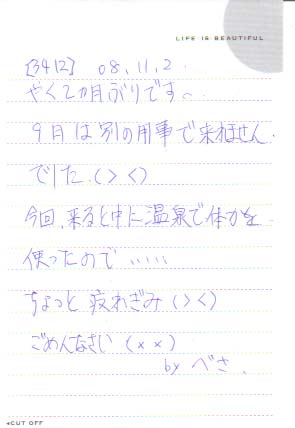 LIFE IS BEAUTIFUL
[3412] 08.11.2.
やく2カ月ぶりです~
9月は別の用事で来れません
でした.(＞＜)
今回,来ると中に温泉で体力を
使ったので……
ちょっと疲れぎみ(＞＜)
ごめんなさい(××)
by べさ.
◂CUT OFF